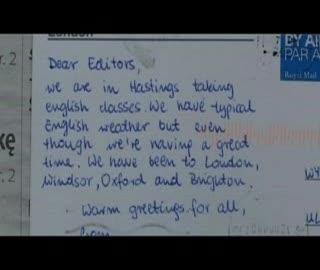 London
BY AI
PAR A
Royal Mail
r. 2
Dear Editors,
we are in Hastings taking
english classes. We have typical
English weather but even
though we're having a great
time. We have been to London,
Windsor, Oxford and Brighton.
kę
r. 2
Warm greetings for all,
from
WY
UL